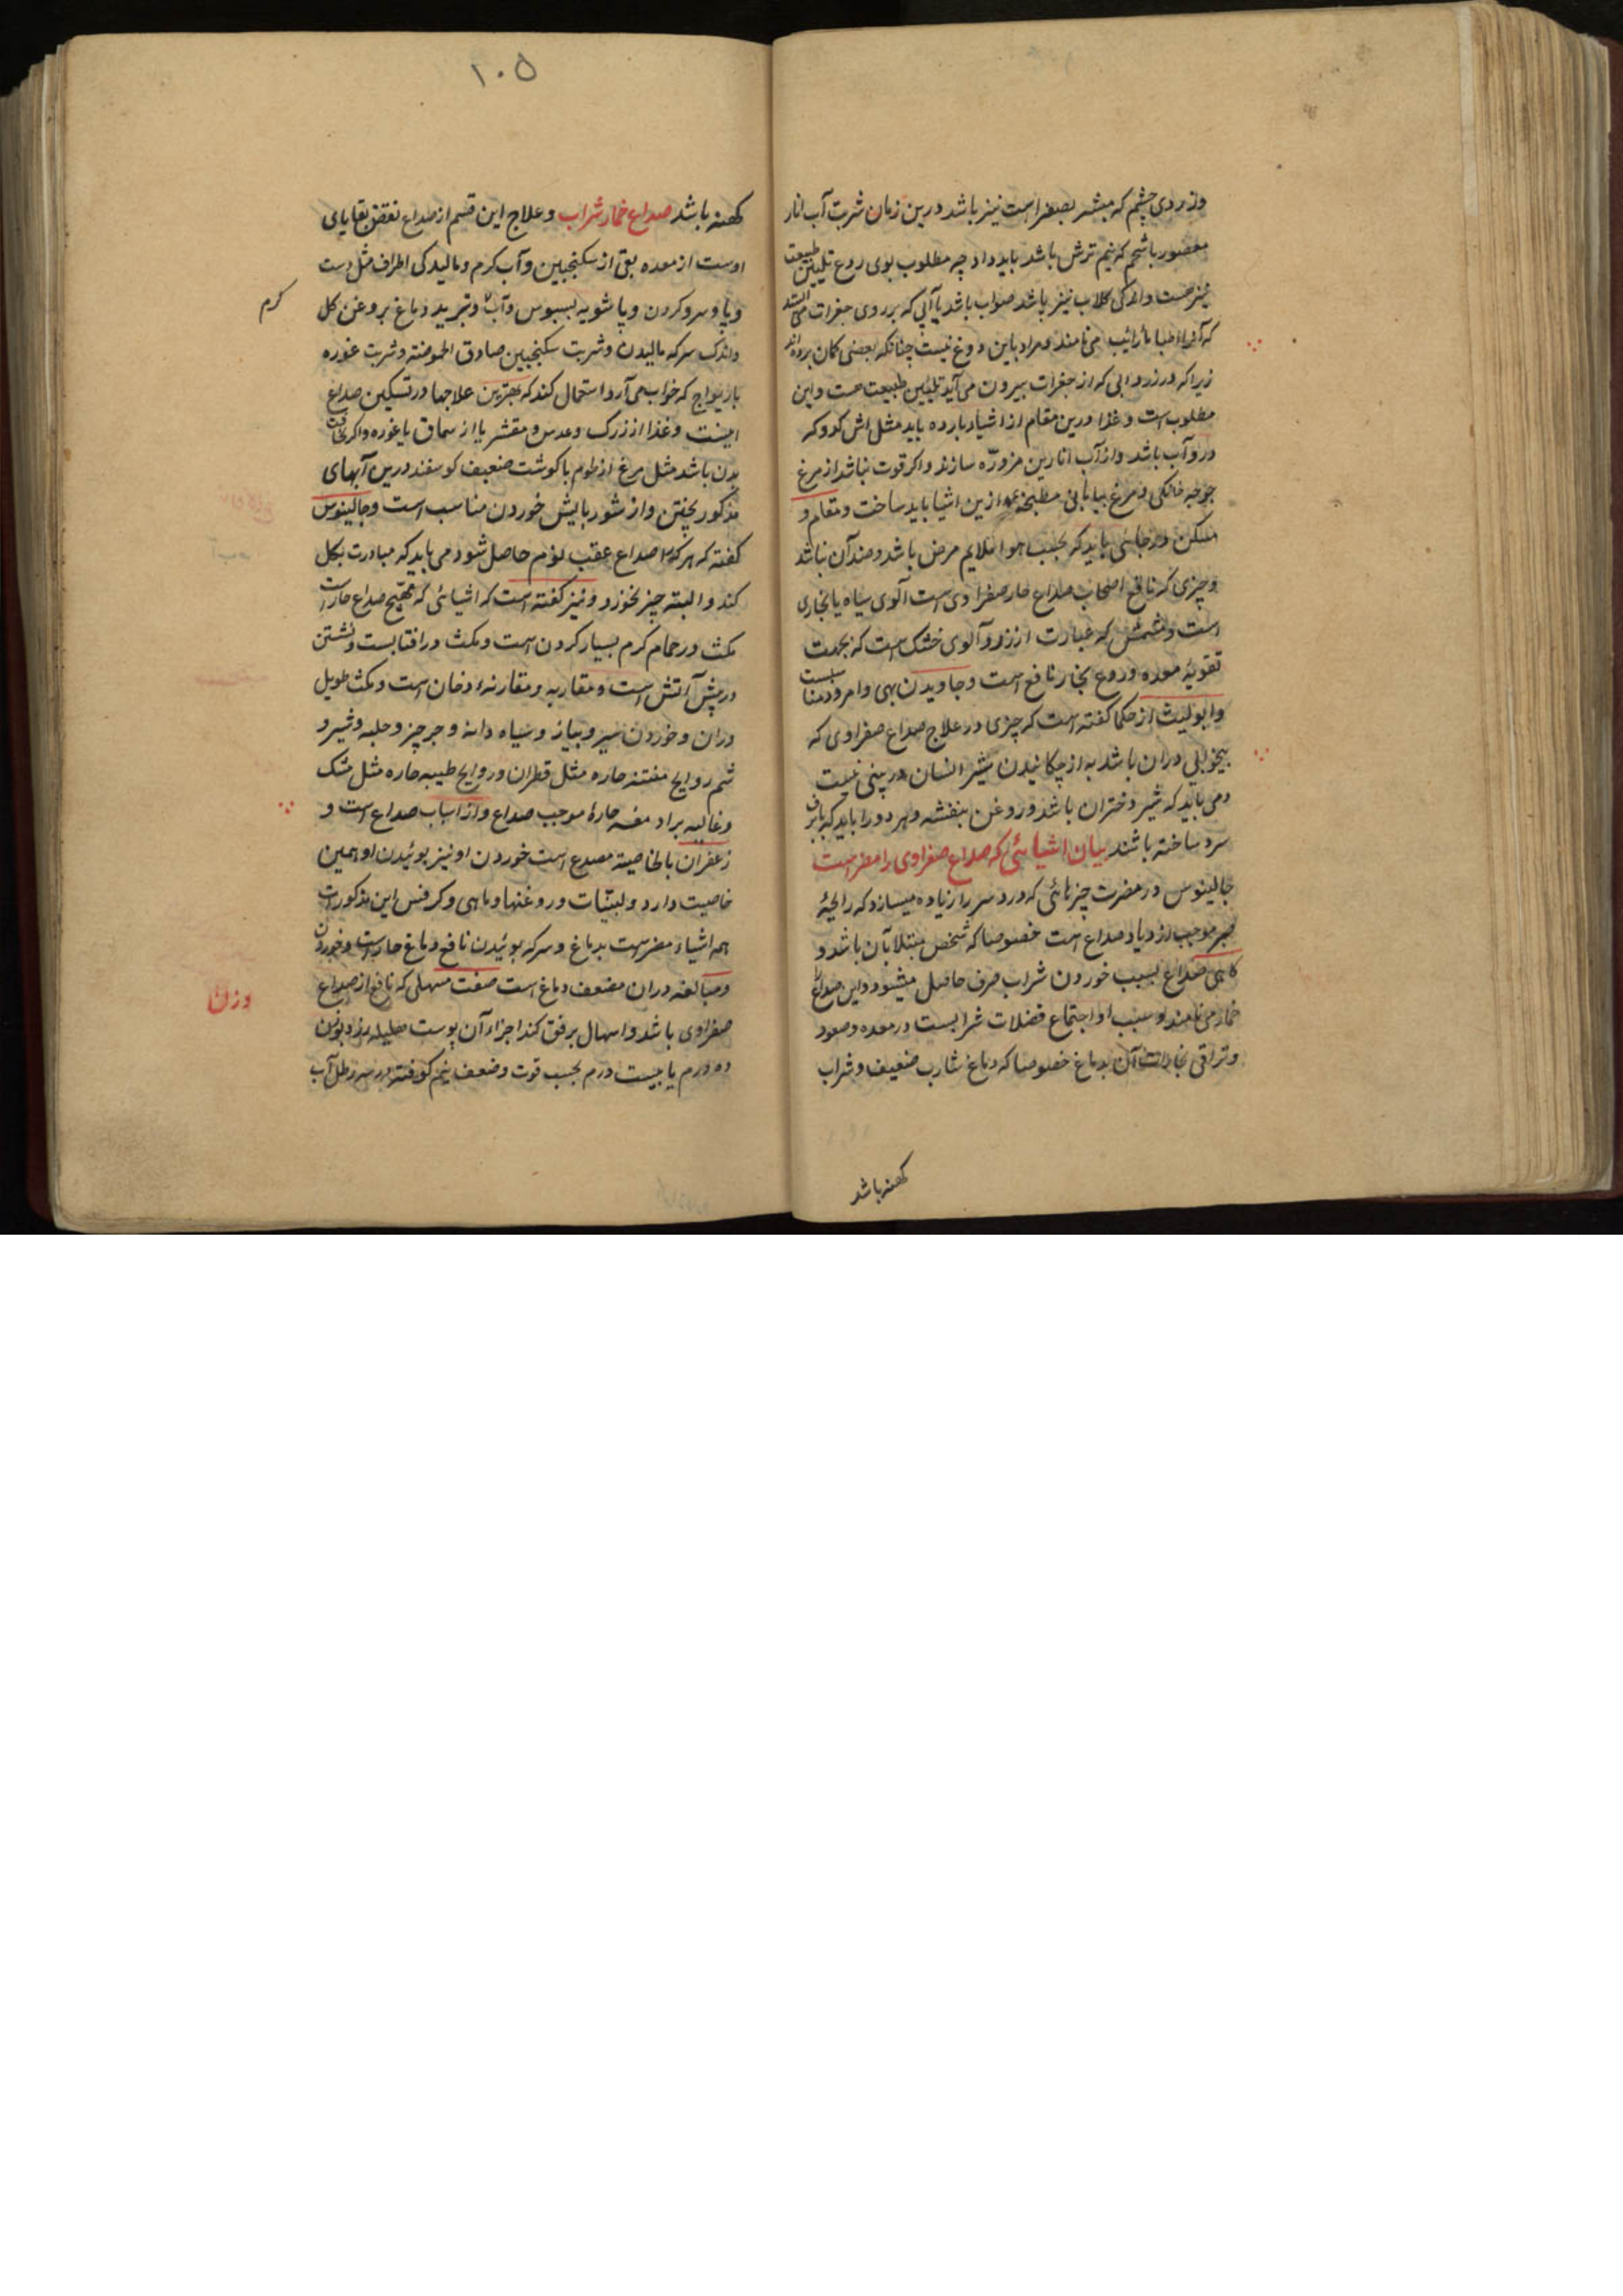 وزردی چشم که مبشر بصفراست نیز باشد درین زمان شربت آب انار
معصور باشحم که نیم ترش باشد باید داد چه مطلوب بوی ردع تلیین طبیعت
نیز هست واندکی کلاب نیز باشد صواب باشد یا آبی که بر روی جغرات می ایستد
که آنرا اطبا مأ رائیب می نامند و مراد باین دوغ نیست چنانکه بعضی کمان برده اند
زیرا که در زردابی که از جغرات بیرون می آید تلیین طبیعت هست واین
مطلوب است و غذا درین مقام از اشیاء بارده باید مثل اش کدو که
درو آب باشد واز آب انارین مزوّره سازند واکر قوت نباشد از مرغ
جوجه خانکی و مرغ بیابانی مطبنجه ازین اشیا باید ساخت و مقام و
مسکن در جایی باید که بحسب هوا ملایم مرض باشد و ضد آن نباشد
وچیزی که نافع اصحاب صداع حار صفراوی است آلوی سیاه یا بخاری
است و مشمش که عبارت از زردآلوی خشک است که بجهت
تقویة معده وردع بخار نافع است وجاویدن بهی وامرود مناسبست
وابولیث از حکما کفته است که چیزی در علاج صداع صفراوی که
بیخوابی دران باشد به از چکانیدن شیر انسان در بینی نیست
ومی باید که شیر دختران باشد و روغن بنفشه و هر دو را باید که با برف
سرد ساخته باشند بیان اشیائی که صداع صفراوی را مضر است
جالینوس در مضرت چیزهائی که درد سر را زیاده میسازد که رایحهٔ
موجب ازدیاد صداع است خصوصا که شخص مبتلا بآن باشد و
کاهی صداع بسبب خوردن شراب صرف حاصل میشود و این صداع را
خمار می نامند و سبب او اجتماع فضلات شرابست در معده وصعود
وتراقی بخارات آن بدماغ خصوصا که دماغ شارب ضعیف و شراب
کهنه باشد
۱۰۵
کهنه باشد صداع خمار شراب وعلاج این قسم از صداع نفض بقایای
اوست از معده بقی از سکنجبین وآب کرم ومالیدکی اطراف مثل دست
وپا وسرو کردن وپا شویه بسبوس وآب وتبرید دماغ بروغن کل
کرم
واندک سرکه مالیدن وشربت سکنجبین صادق الحموضة وشربت غوره
باز بیواج که خواب می آرد استعمال کند که بهترین علاجها در تسکین صداع
اینست وغذا از زرک وعدس ومقشر یا از سماق یا غوره واکر نحافت
بدن باشد مثل مرغ از طوم با کوشت ضعیف کوسفند درین آبهای
مذکور پختن واز شوربایش خوردن مناسب است وجالینوس
کفته که هر که را صداع عقب لؤم حاصل شود می باید که مبادرت بکل
کند والبته چیز بخورد ونیز کفته است که اشیائی که مهیج صداع حار است
مکث در حمام کرم بسیار کردن است ومکث در افتابست ونشستن
در پیش آتش است ومقاربه ومقارنهٔ دخان است ومکث طویل
دران وخوردن سیر وپیاز وسیاه دانه وجرجیر وحلبه وشیر و
شم روایح مفتنه حاره مثل قطران وروایح طیبه حاره مثل مشک
وغالیه حارهٔ موجب صداع واز اسباب صداع است و
زعفران بالخاصیة مصدع است خوردن او نیز بوئیدن او همین
خاصیت دارد ولبنیات وروغنها وماهی وکرفس این مذکورات
همه اشیاء مضرست بدماغ وسرکه بوئیدن نافع دماغ حار است وخوردن
ومبالغه دران مضعف دماغ است صفت مسهلی که نافع از صداع
وزن
صفراوی باشد واسهال برفق کند اجزاء آن پوست هلیله زرد بوزن
ده درم یا بیست درم بحسب قوت وضعف نیم کوفته در سه رطل آب